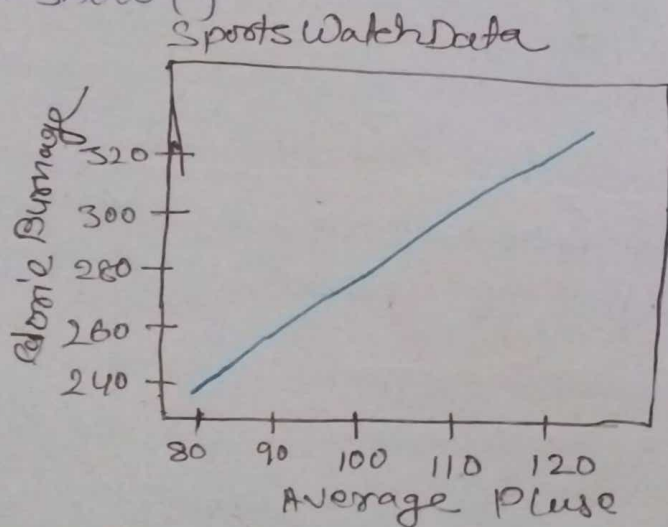 Sports Watch Data
Calorie Burnage
320
300
280
260
240
80 90 100 110 120
Average Pluse